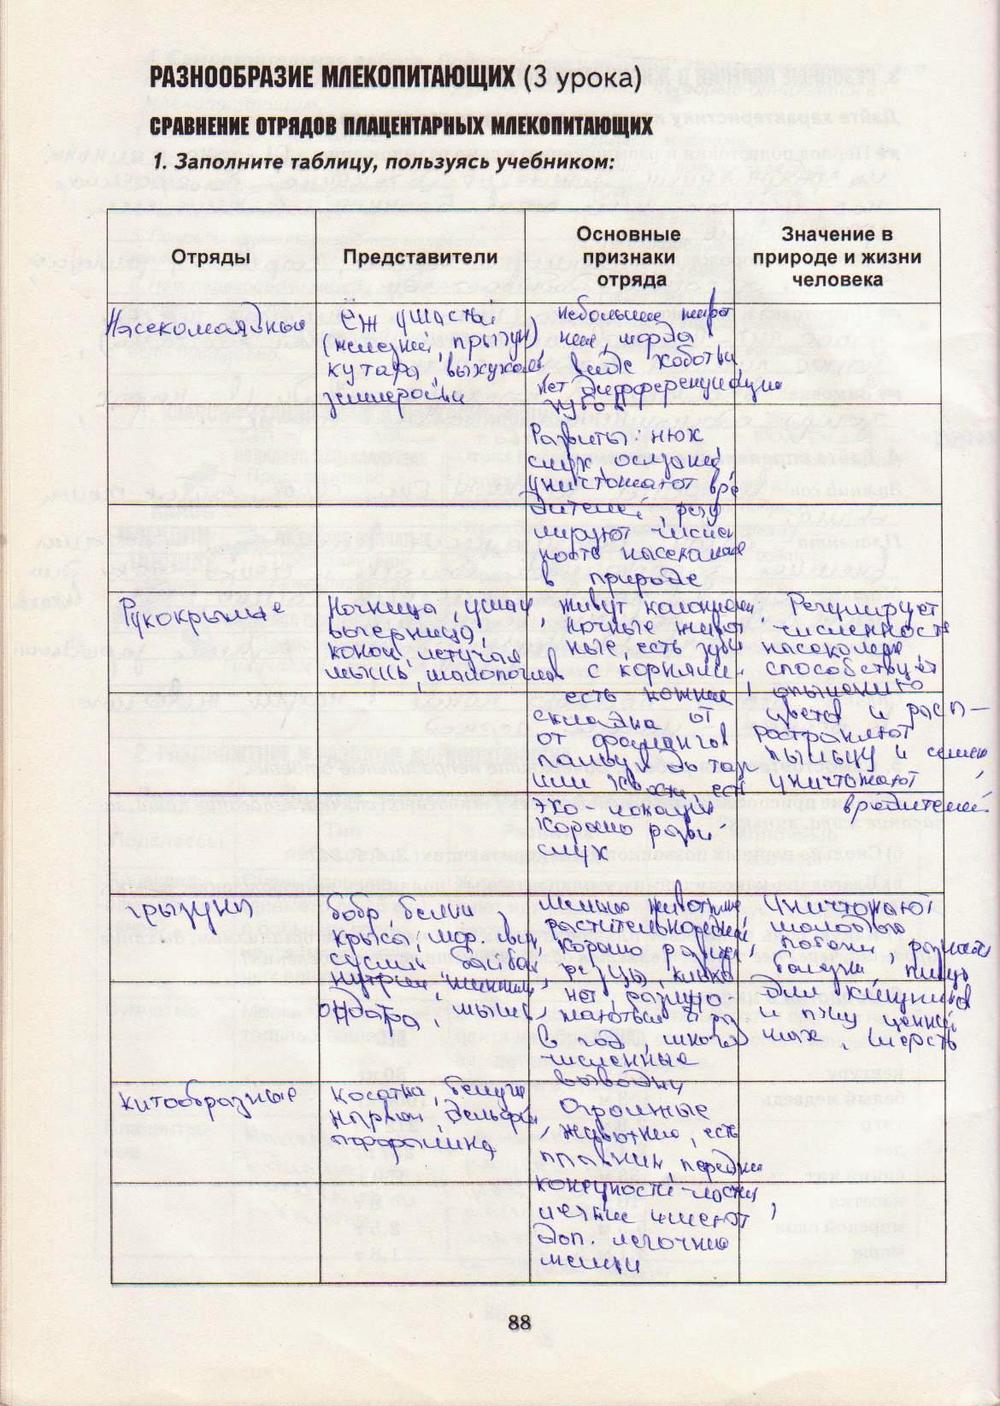 РАЗНООБРАЗИЕ МЛЕКОПИТАЮЩИХ (3 урока)
СРАВНЕНИЕ ОТРЯДОВ ПЛАЦЕНТАРНЫХ МЛЕКОПИТАЮЩИХ
1. Заполните таблицу, пользуясь учебником:
Отряды
Представители
Основные
признаки
отряда
Значение в
природе и жизни
человека
Насекомоядные
Ёж ушастый
кутора, выхухоль
землеройки
небольшие живот
ные, морда
в виде хоботка
нет дифференциации
зубов
Развиты: нюх,
слух, осязание
уничтожают вре
дителей, регу
лируют числен
ность насекомых
в природе
Рукокрылые
Ночница ушан,
вечерница,
летучая
мышь,
живут колониями,
ночные живот
ные, есть зубы
с корнями,
есть кожные
складка от
от фаланг
пальцев до
или хвоста, есть
эхо-локация
Хорошо разви
слух
Регулирует
численность
насекомых
способствует
опылению
цветов и расп-
ространяют
пыльцу и семена
уничтожают
вредителей
грызуны
бобр, белки,
крысы, мор. свин,
суслик, байбак
нутрии,
ондатра, мыши
Мелкие животные
растительноядные,
хорошо развиты
резцы, клыков
нет, размно
жаются
в год, много
численные
выводки
Уничтожают
болезни, пища
для хищников
и птиц ценный
мех, шерсть
китообразные
косатка, белуха
нарвал, дельфин,
Огромные
животные, есть
плавники, передние
конечности-ласты
имеют,
доп. легочные
мешки
88